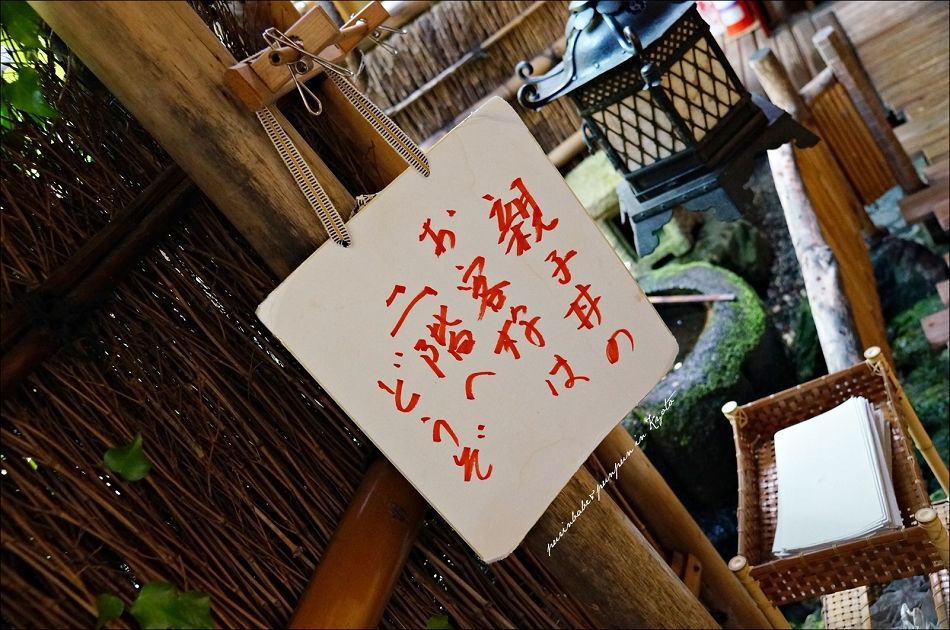 親子丼の
お客様は
二階へ
どうぞ
purinbabe & punpun in Kyoto